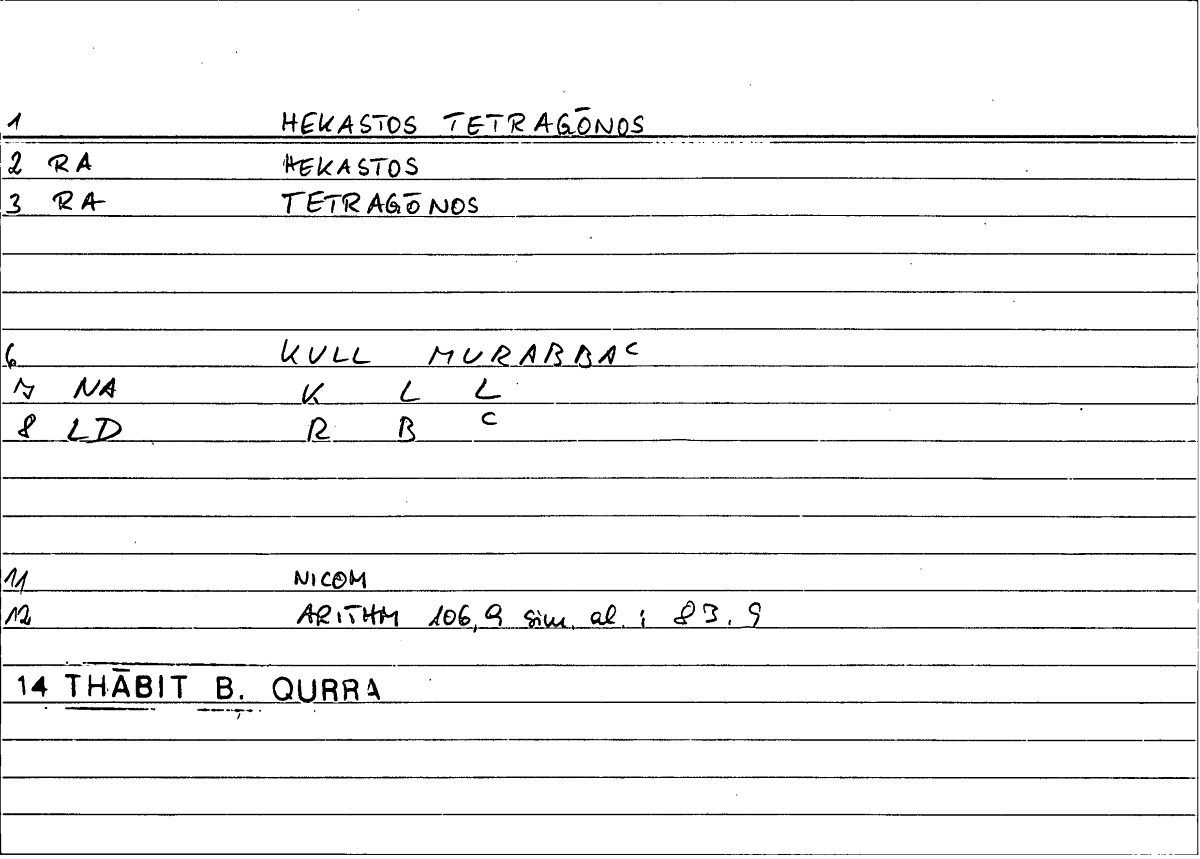 1 HEKASTOS TETRAGŌNOS
2 RA HEKASTOS
3 RA TETRAGŌNOS
6 KULL MURABBAᶜ
7 NA K L L
8 LD R B ᶜ
11 NICOM
12 ARITHM 106,9 sim. al. ; 83.9
14 THĀBIT B. QURRA